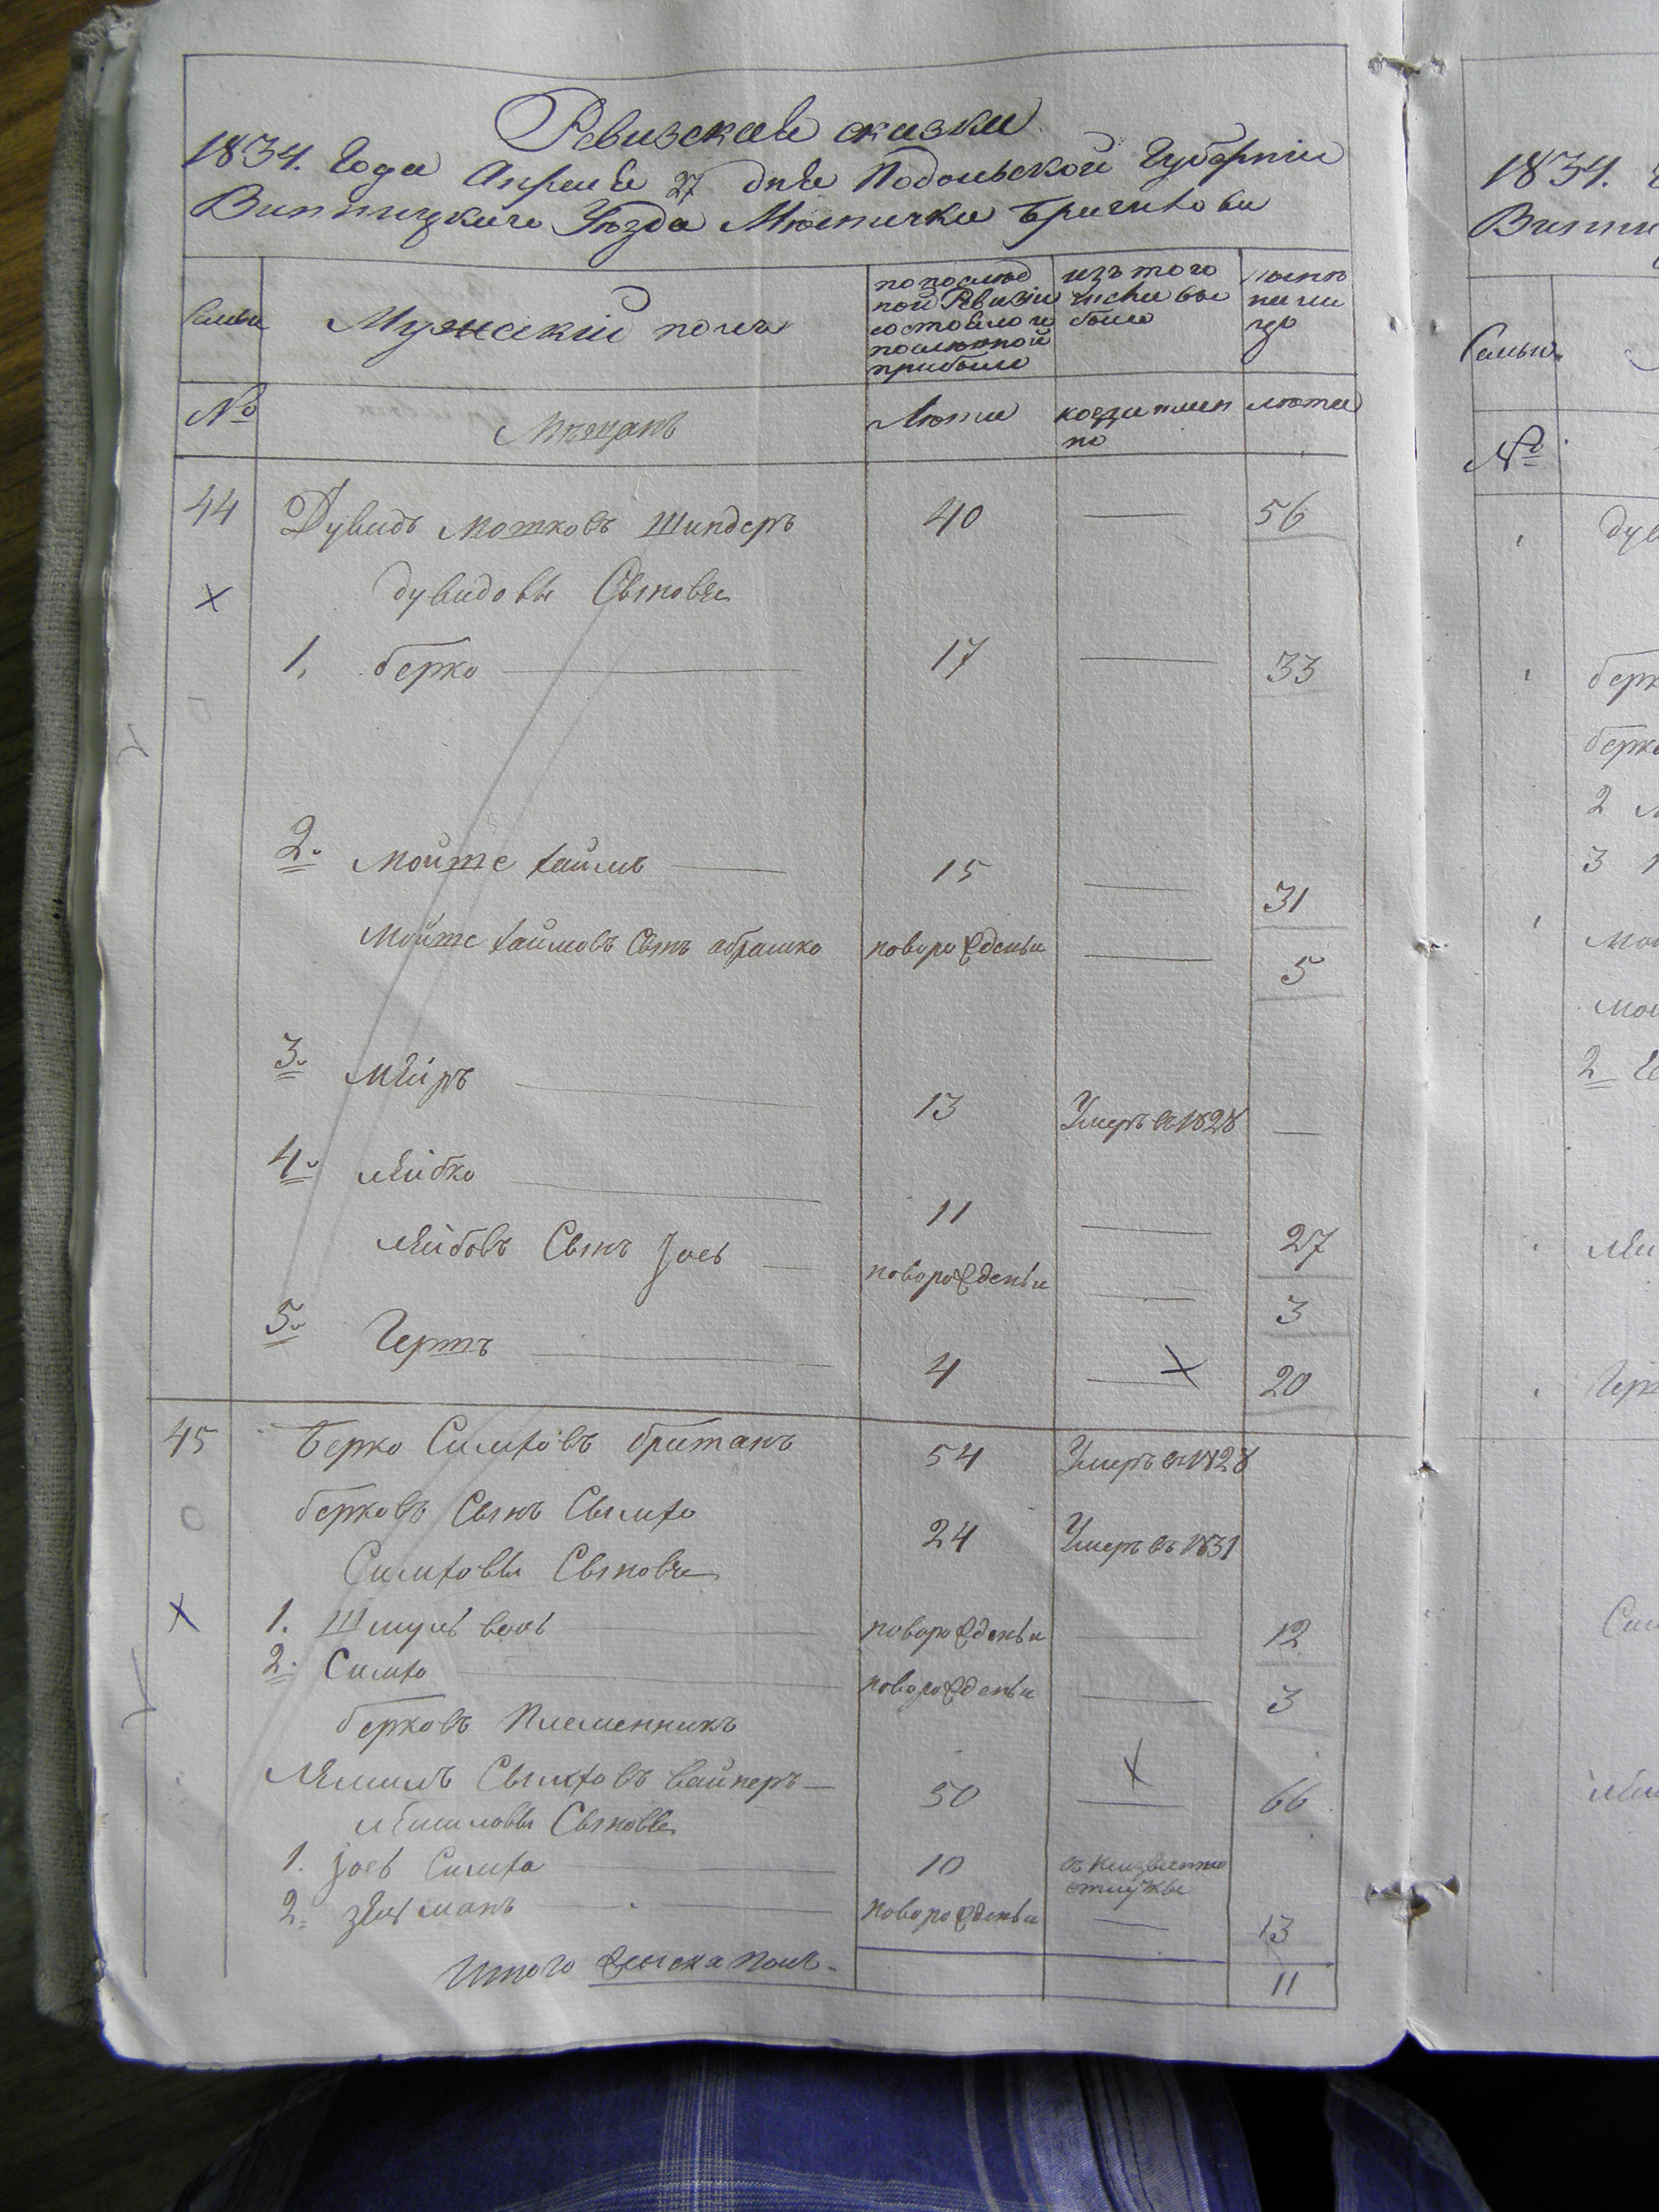 Ревизская сказка
1834. Года Апреля 27 дня Подольской Губерніи
Винницкаго Уѣзда Мѣстечка Браилова
Семьи
Мужескій полъ
по послѣд
ной Ревизіи
состояло и
послѣтной
прибыло
изъ того
числа вы
было
лѣтъ
ны ли
цо
№
Мѣщанъ
Лѣта
когда имен
но
лѣта
44 Дувидъ Мошковъ Шиндеръ 40 — 56
Дувидовы Сыновья
1. берко — 17 — 33
2. Мойше хаимъ — 15 — 31
Мойше хаимовъ Сынъ абрашко новорожденъи — 5
3. Меиръ — 13 Умеръ въ 1828 —
4. лейбко — 11 — 27
лейбовъ Сынъ Joеь — новорожденъи — 3
5. Гершъ — 4 — 20
45 Берко Симховъ британъ 54 Умеръ въ 1828
берковъ Сынъ Сымхо 24 Умеръ въ 1831
Симховы Сыновья
1. Шмуль — новорожденъи — 12
2. Симхо — новорожденъи — 3
берковъ Племенникъ
Сымховъ вайнеръ — 50 — 66
Сыновья
1. Joеь Симха — 10 въ неизвестно
отлучке
2. — новорожденъи — 13
Итого полъ. 11
1834.
Винни
Семьи
№
Дув
берк
берко
2
3
Мой
Мой
2
Лей
Герш
Сим